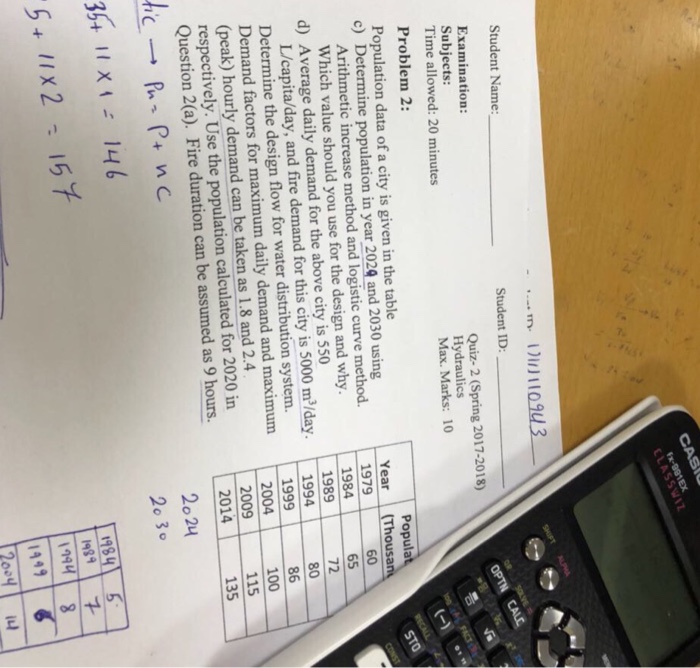 1711110943
Student Name:
Student ID:
Examination:
Quiz- 2 (Spring 2017-2018)
Subjects:
Hydraulics
Time allowed: 20 minutes
Max. Marks: 10
Problem 2:
Population data of a city is given in the table
c) Determine population in year 2029 and 2030 using
Arithmetic increase method and logistic curve method.
Which value should you use for the design and why.
d) Average daily demand for the above city is 550
L/capita/day, and fire demand for this city is 5000 m³/day.
Determine the design flow for water distribution system.
Demand factors for maximum daily demand and maximum
(peak) hourly demand can be taken as 1.8 and 2.4
respectively. Use the population calculated for 2020 in
Question 2(a). Fire duration can be assumed as 9 hours.
Year Populat
(Thousan
1979 60
1984 65
1989 72
1994 80
1999 86
2004 100
2009 115
2014 135
2024
2030
tic → Pn = P + nC
35 + 11 x 1 = 146
5 + 11 x 2 = 157
1984 5
1989 7
1994 8
1999 6
2004 14
CASIO
fx-991EX
CLASSWIZ
SHIFT
ALPHA
OPTN
CALC
(-)
STO
RECALL
CONST